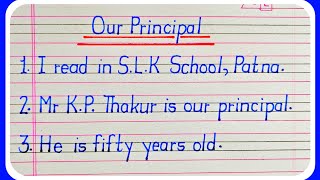 Our Principal
1. I read in S.L.K School, Patna.
2. Mr K.P. Thakur is our principal.
3. He is fifty years old.